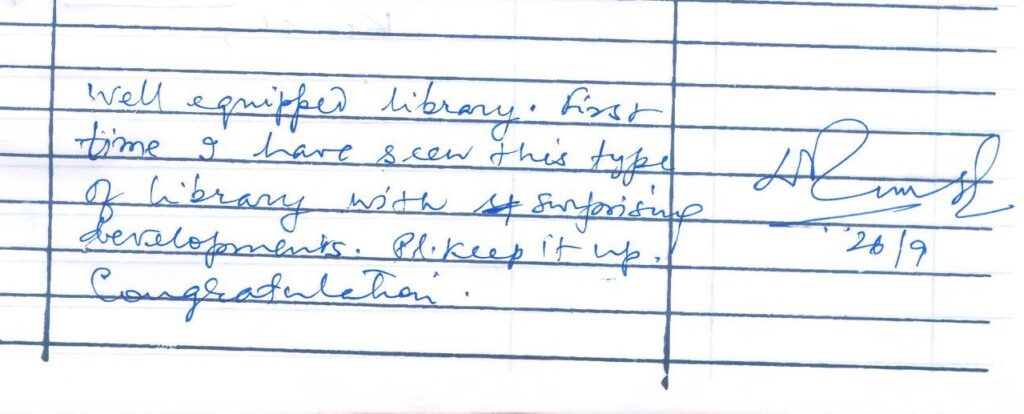 Well equipped library. First
time I have seen this type
of library with surprising
developments. Pl. keep it up.
Congratulation.
26/9